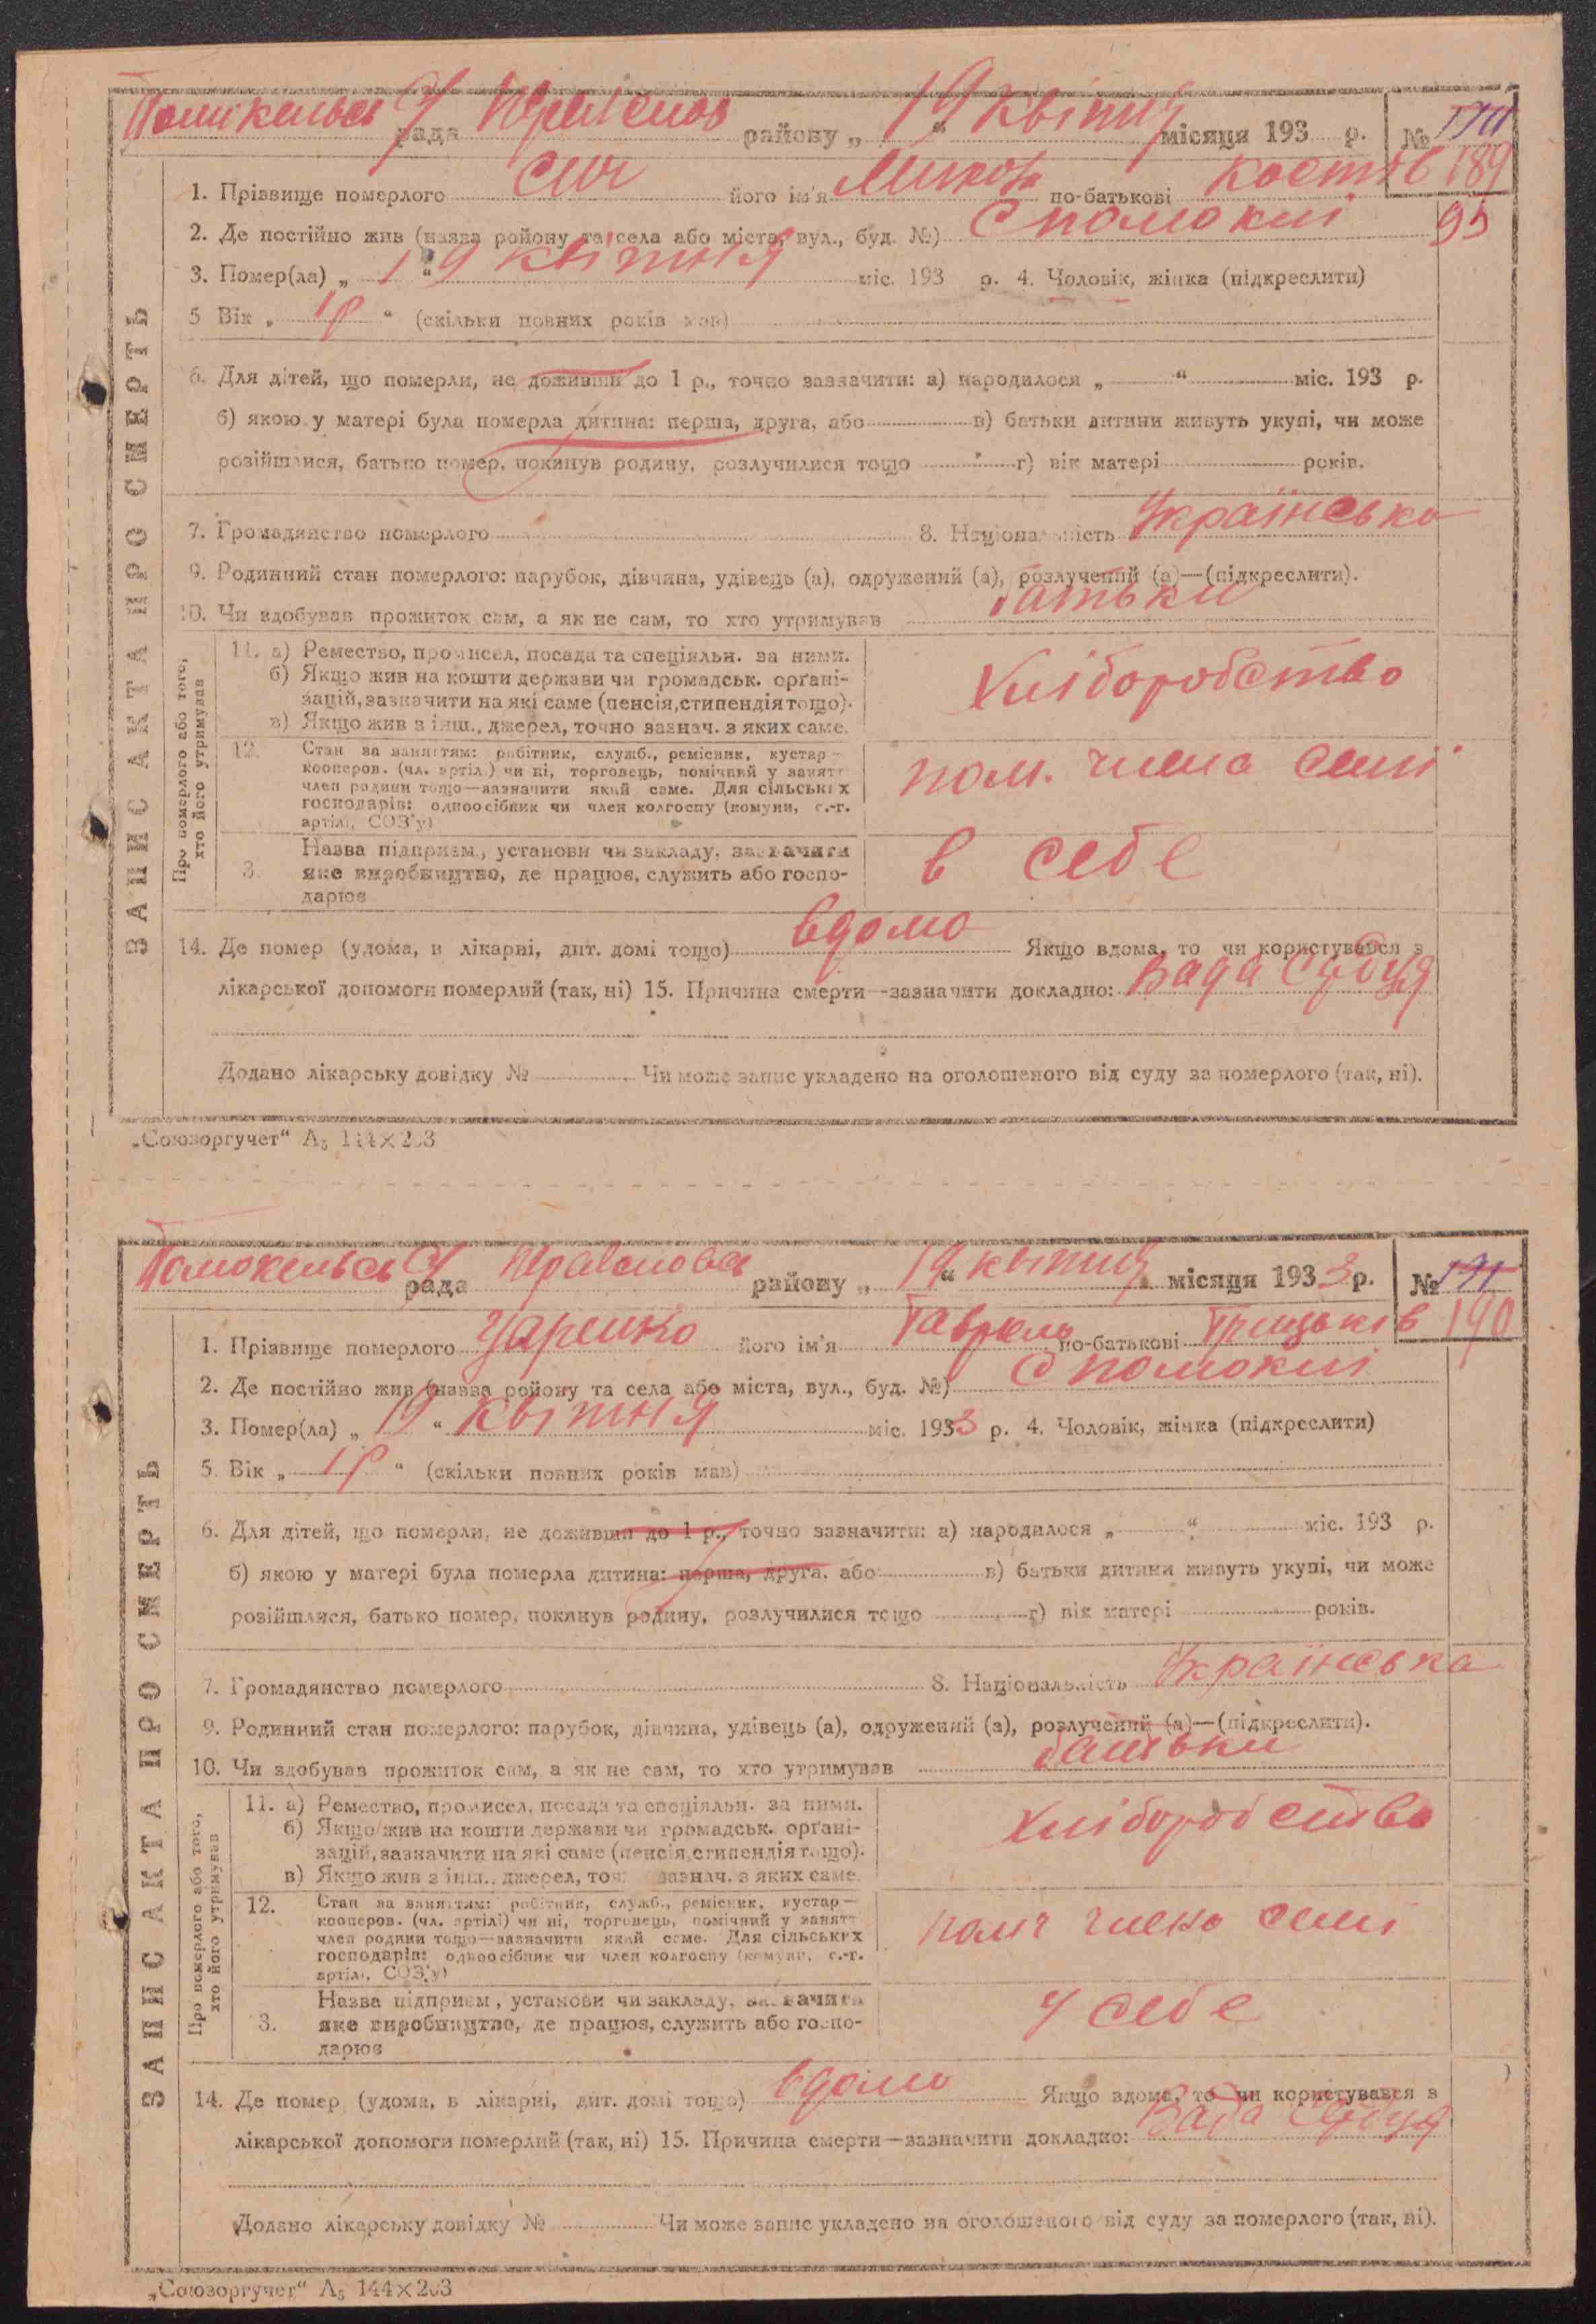 рада районов району „ 19 “ квітня місяця 193 р. № 170
189
1. Прізвище померлого Сич його ім'я Микола по-батькові Костів
95
2. Де постійно жив (назва ройону та села або міста, вул., буд. №) С Помокли
3. Помер(ла) „ 19 “ квітня міс. 193 р. 4. Чоловік, жінка (підкреслити)
5 Вік „ 1р “ (скільки повних років мав)
6. Для дітей, що померли, не доживши до 1 р., точно зазначити: а) народилося „ “ міс. 193 р.
б) якою у матері була померла дитина: перша, друга, або в) батьки дитини живуть укупі, чи може
розійшлися, батько помер, покинув родину, розлучилися тощо г) вік матері років.
7. Громадянство померлого 8. Національність Українська
9. Родинний стан померлого: парубок, дівчина, удівець (а), одружений (а), розлучений (а)—(підкреслити).
10. Чи здобував прожиток сам, а як не сам, то хто утримував батьки
ЗАПИС АКТА ПРО СМЕРТЬ
Про померлого або того, хто його утримував
11. а) Ремество, промисел, посада та спеціяльн. за ними.
б) Якщо жив на кошти держави чи громадськ. орґані-
зацій, зазначити на які саме (пенсія, стипендія тощо).
в) Якщо жив з інш., джерел, точно зазнач. з яких саме.
Хліборобство
12. Стан за заняттям: робітник, служб., ремісник, кустар—
кооперов. (чл. артіл.) чи ні, торговець, помічний у занятт
член родини тощо—зазначити який саме. Для сільських
господарів: одноосібник чи член колгоспу (комуни, с.-г.
артілі, СОЗ'у)
пом. члена семї
3. Назва підприєм., установи чи закладу, зазначити
яке виробництво, де працює, служить або госпо-
дарює
в себе
14. Де помер (удома, в лікарні, дит. домі тощо) вдома Якщо вдома, то чи користувався з
лікарської допомоги померлий (так, ні) 15. Причина смерти—зазначити докладно: Вада Сердця
Додано лікарську довідку № Чи може запис укладено на оголошеного від суду за померлого (так, ні).
„Союзоргучет“ А₅ 144×203
рада району „ 19 “ квітня місяця 1933 р. № 171
190
1. Прізвище померлого Царенко його ім'я Гаврило по-батькові Грицьків
2. Де постійно жив (назва ройону та села або міста, вул., буд. №) С Помокли
3. Помер(ла) „ 19 “ квітня міс. 1933 р. 4. Чоловік, жінка (підкреслити)
5. Вік „ 1р “ (скільки повних років мав)
6. Для дітей, що померли, не доживши до 1 р., точно зазначити: а) народилося „ “ міс. 193 р.
б) якою у матері була померла дитина: перша, друга, або в) батьки дитини живуть укупі, чи може
розійшлися, батько помер, покинув родину, розлучилися тощо г) вік матері років.
7. Громадянство померлого 8. Національність Українська
9. Родинний стан померлого: парубок, дівчина, удівець (а), одружений (а), розлучений (а)—(підкреслити).
10. Чи здобував прожиток сам, а як не сам, то хто утримував батьки
ЗАПИС АКТА ПРО СМЕРТЬ
Про померлого або того, хто його утримував
11. а) Ремество, промисел, посада та спеціяльн. за ними.
б) Якщо жив на кошти держави чи громадськ. орґані-
зацій, зазначити на які саме (пенсія, стипендія тощо).
в) Якщо жив з інш., джерел, точ зазнач. з яких саме
Хліборобство
12. Стан за заняттям: робітник, служб., ремісник, кустар—
кооперов. (чл. артілі) чи ні, торговець, помічний у занятт
член родини тощо—зазначити який саме. Для сільських
господарів: одноосібник чи член колгоспу (комуни, с.-г.
артілі, СОЗ'у)
члена семї
3. Назва підприєм., установи чи закладу, зазначити
яке виробництво, де працює, служить або госпо-
дарює
у себе
14. Де помер (удома, в лікарні, дит. домі тощо) вдома Якщо вдома, то чи користувався з
лікарської допомоги померлий (так, ні) 15. Причина смерти—зазначити докладно: Вада Сердця
Додано лікарську довідку № Чи може запис укладено на оголошеного від суду за померлого (так, ні).
„Союзоргучет“ А₅ 144×203